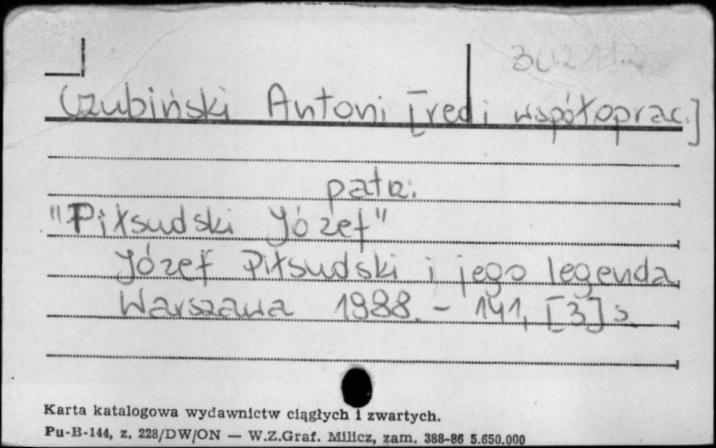 Czubiński Antoni [red i współoprac.]
patrz:
"Piłsudski Józef"
Józef Piłsudski i jego legenda
Warszawa 1988. - 141, [3] s.
Karta katalogowa wydawnictw ciągłych i zwartych.
Pu-B-144, z. 228/DW/ON — W.Z.Graf. Milicz, zam. 388-86 5.650.000